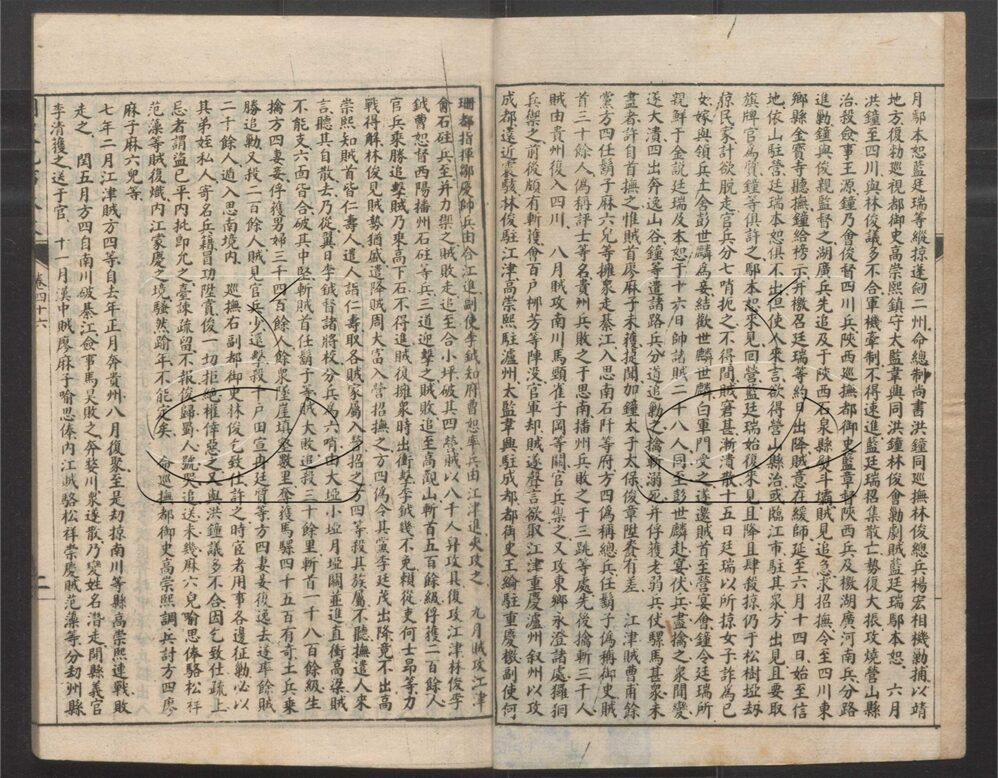 月鄢本恕藍廷瑞等縱掠蓬劍二州命總制尚書洪鐘同巡撫林俊總兵楊宏相機勦捕以靖
地方復勅巡視都御史高崇熙鎮守太監韋興同洪鐘林俊會勦劇賊藍廷瑞鄢本恕　六月
洪鐘至四川與林俊議多不合軍機牽制不得速進藍廷瑞招集散亡勢復大振攻燒營山縣
治殺僉事王源鐘乃會俊督四川兵陝西巡撫都御史藍章督陝西兵及檄湖廣河南兵分路
進勦鐘與俊親監督之湖廣兵先追及于陝西石泉縣熨斗壩賊見追急求招撫令至四川東
鄉縣金寶寺聽撫鐘給榜示并檄召廷瑞等約日出降賊意在緩師延至六月十四日始至信
地依山駐營廷瑞本恕俱不出但使人來言欲得營山縣治或臨江市駐其衆方出見且要取
旗牌官爲質鐘等俱許之鄢本恕來見回營藍廷瑞始復來見且降且肆殺掠仍于松樹埡刼
掠民家計欲脱走官兵分七哨扼之不得間賊窘甚漸潰散十五日廷瑞以所掠女子詐爲己
女嫁與領兵土舍彭世麟爲妾結歡世麟世麟白軍門受之遂邀賊首至營宴會鐘令廷瑞所
親鮮于金說廷瑞及本恕于十六日帥諸賊二十八人同至彭世麟赴宴伏兵盡擒之衆聞變
遂大潰四出奔逸山谷鐘等遣諸路兵分道追勦之擒斬溺死并俘獲老弱兵仗騾馬甚衆未
盡者許自首撫之惟賊首廖麻子未獲捷聞加鐘太子太保俊章陞賚有差　江津賊曹甫餘
黨方四任鬍子麻六兒等擁衆走綦江入思南石阡等府方四僞稱總兵任鬍子僞稱御史賊
首三十餘人僞稱評士等名貴州兵敗之于思南播州兵敗之于三跳等處先後擒斬三千人
賊由貴州復入四川　八月賊攻南川馬頸雀子岡等關官兵禦之又攻東鄉永澄諸處獠狪
兵禦之前後頗有斬獲會百戶柳芳等陣没官軍却賊遂聲言欲取江津重慶瀘州叙州以攻
成都遠近震駭林俊駐江津高崇熙駐瀘州太監韋興駐成都都御史王綸駐重慶檄副使何
珊都指揮鄒慶帥兵由合江進副使李鉞知府曹恕率兵由江津進夾攻之　九月賊攻江津
會石砫兵至并力禦之賊敗走追至合小坪破其四營賊以八千人舁攻具復攻江津林俊李
鉞曹恕督酉陽播州石砫等兵三道迎擊之賊敗追至高觀山斬首五百餘級俘獲二百餘人
官兵乘勝追擊賊乃乘高下石不得進賊復擁衆時出衝擊李鉞幾不免賴從吏何士昂等力
戰得解林俊見賊勢猶盛遣降賊周大富入營招撫之方四僞令其黨李廷茂出降竟不出高
崇熙知賊首皆仁壽人遣人詣仁壽取各賊家屬入營招之方四等殺其族屬不聽撫遣人來
言聽其自散去乃從翼日李鉞督諸將校分兵爲六哨由大埡小埡月埡關並進直衝高梁賊
不能支六面皆合破其中堅斬賊首任鬍子等賊大敗追殺三十餘里斬首一千八百餘級生
擒方四妻妾俘獲男婦三千四百餘人餘衆墜崖填壑數里奪獲馬騾四十五百有奇土兵乘
勝追勦又投二百餘人賊見官兵少還擊殺千戶田宣冉廷質等方四妻妾復逸去遂率餘賊
二千餘人遁入思南境内　巡撫右副都御史林俊乞致仕許之時宦者用事各邊征勦必以
其弟姪私人寄名兵籍冒功陞賞俊一切拒絶權倖惡之又與洪鐘議多不合因乞致仕疏上
忌者謂盜已平内批即允之臺諫疏留不報俊歸蜀人號哭追送未幾麻六兒喻思俸駱松祥
范藻等賊復熾内江榮慶之境騷然踰年不能定矣　命巡撫都御史高崇熙調兵討方四廖
麻子麻六兒等
七年二月江津賊方四等自去年正月奔貴州八月復聚至是刼掠南川等縣高崇熙連戰敗
走之　閏五月方四自南川破綦江僉事馬昊敗之奔婺川衆遂散乃變姓名潛走開縣義官
李清獲之送于官　十一月漢中賊廖麻子喻思俸内江賊駱松祥崇慶賊范藻等分刼州縣
卷四十六
二